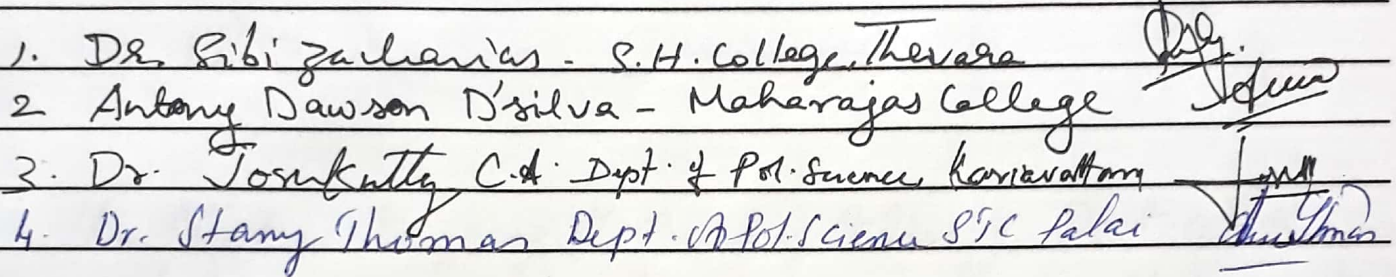 1. Dr. Sibi Zacharias - S.H. College, Thevara
2 Antony Dawson D'silva - Maharajas College
3. Dr. Josukutty C.A. Dept. of Pol. Science, Kariavattom
4. Dr. Stany Thomas Dept. of Pol. Science STC Palai